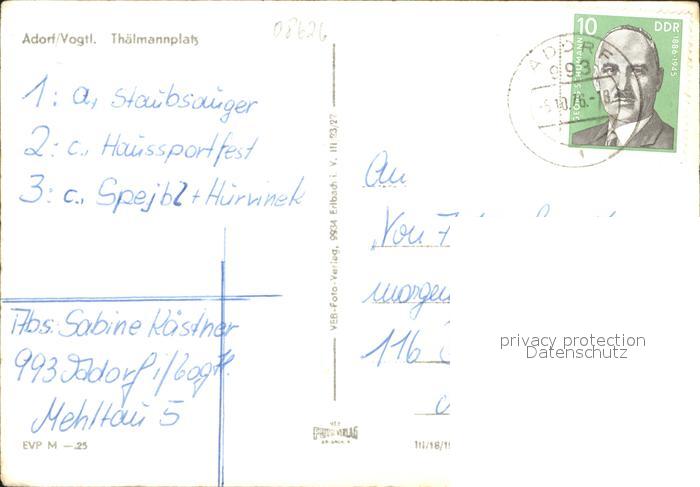 Adorf/Vogtl. Thälmannplatz
08626
1: a, Staubsauger
2: c., Haussportfest
3: c., Spejbl + Hurvinek
Abs: Sabine Kästner
993 Adorf i/Vogtl.
Mehltau 5
EVP M —.25
VEB-Foto-Verlag, 9934 Erlbach i. V. III 23/27
10 DDR
GEORG SCHUMANN
1886-1945
ADORF
993
-5.10.76.-18
An
"Von
morgen
116
privacy protection
Datenschutz
III/18/1